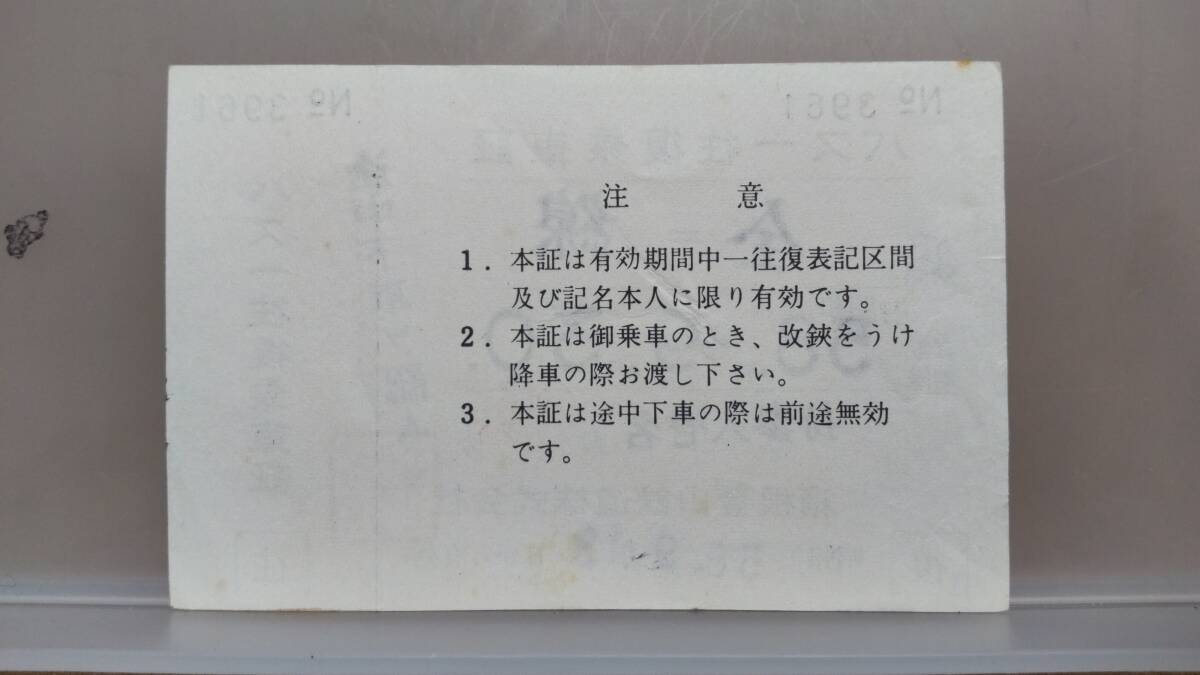 注 意
1. 本証は有効期間中一往復表記区間
及び記名本人に限り有効です。
2. 本証は御乗車のとき、改鋏をうけ
降車の際お渡し下さい。
3. 本証は途中下車の際は前途無効
です。